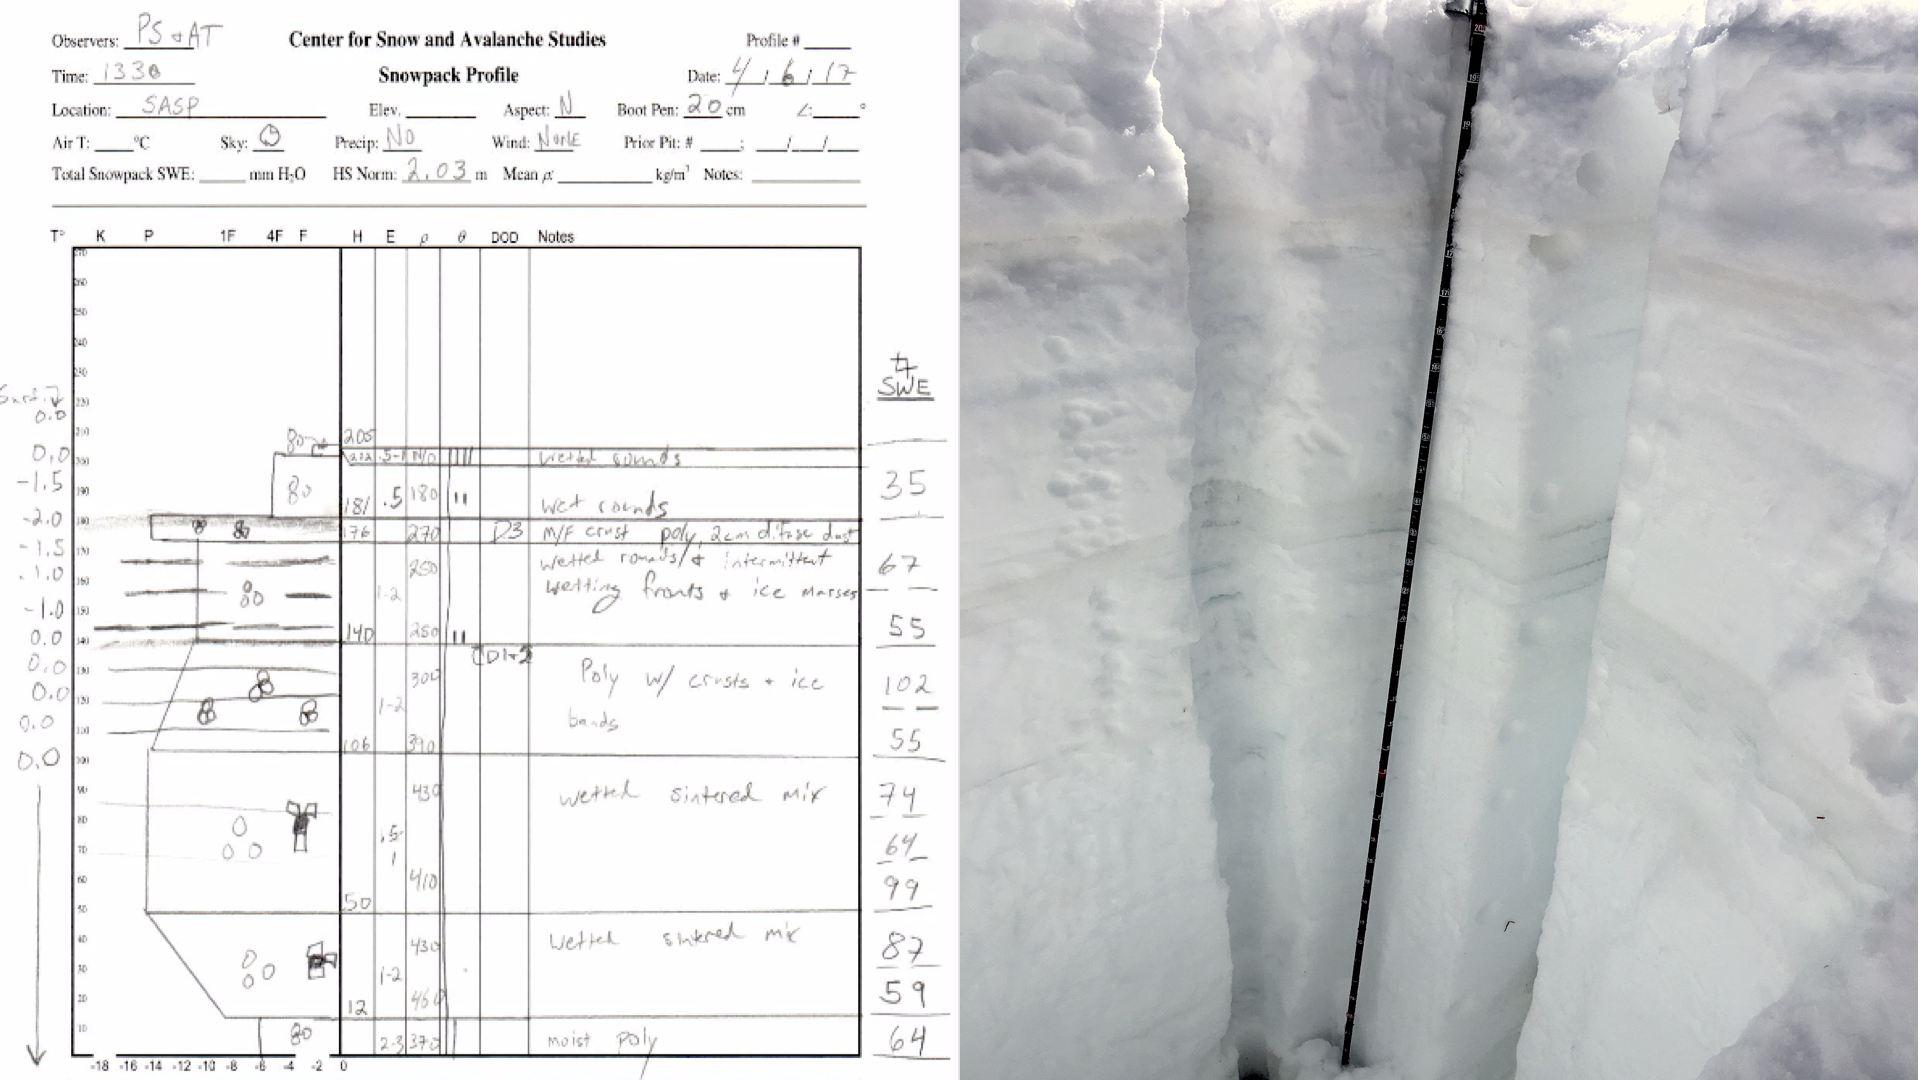 Observers: PS & AT Center for Snow and Avalanche Studies Profile #
Time: 1330 Snowpack Profile Date: 4/6/17
Location: SASP Elev. Aspect: N Boot Pen: 20 cm ∠: °
Air T: °C Sky: Precip: NO Wind: NONE Prior Pit: # ; / /
Total Snowpack SWE: mm H2O HS Norm: 2.03 m Mean ρ: kg/m³ Notes:
T° K P 1F 4F F H E ρ θ DOD Notes
270
260
250
240
230
SWE
220
0.0
210
205
0.0 200 202 .5-1 N/O wetted rounds
-1.5 35
190 181 .5 180 wet rounds
-2.0 180 176 270 D3 M/F crust poly, 2cm difuse dust
-1.5 170 250 wetted rounds w/ intermittent 67
-1.0 160 1-2 wetting fronts & ice masses
-1.0 150 55
0.0 140 140 250
0.0 130 300 D1+2 Poly w/ crusts + ice 102
0.0 120 1-2 bands
0.0 110 106 390 55
0.0 100
90 430 wetted sintered mix 74
80 .5-1 64
70
60 410 99
50 50
40 430 wetted sintered mix 87
30 1-2
20 12 460 59
10 2-3 370 moist poly 64
-18 -16 -14 -12 -10 -8 -6 -4 -2 0